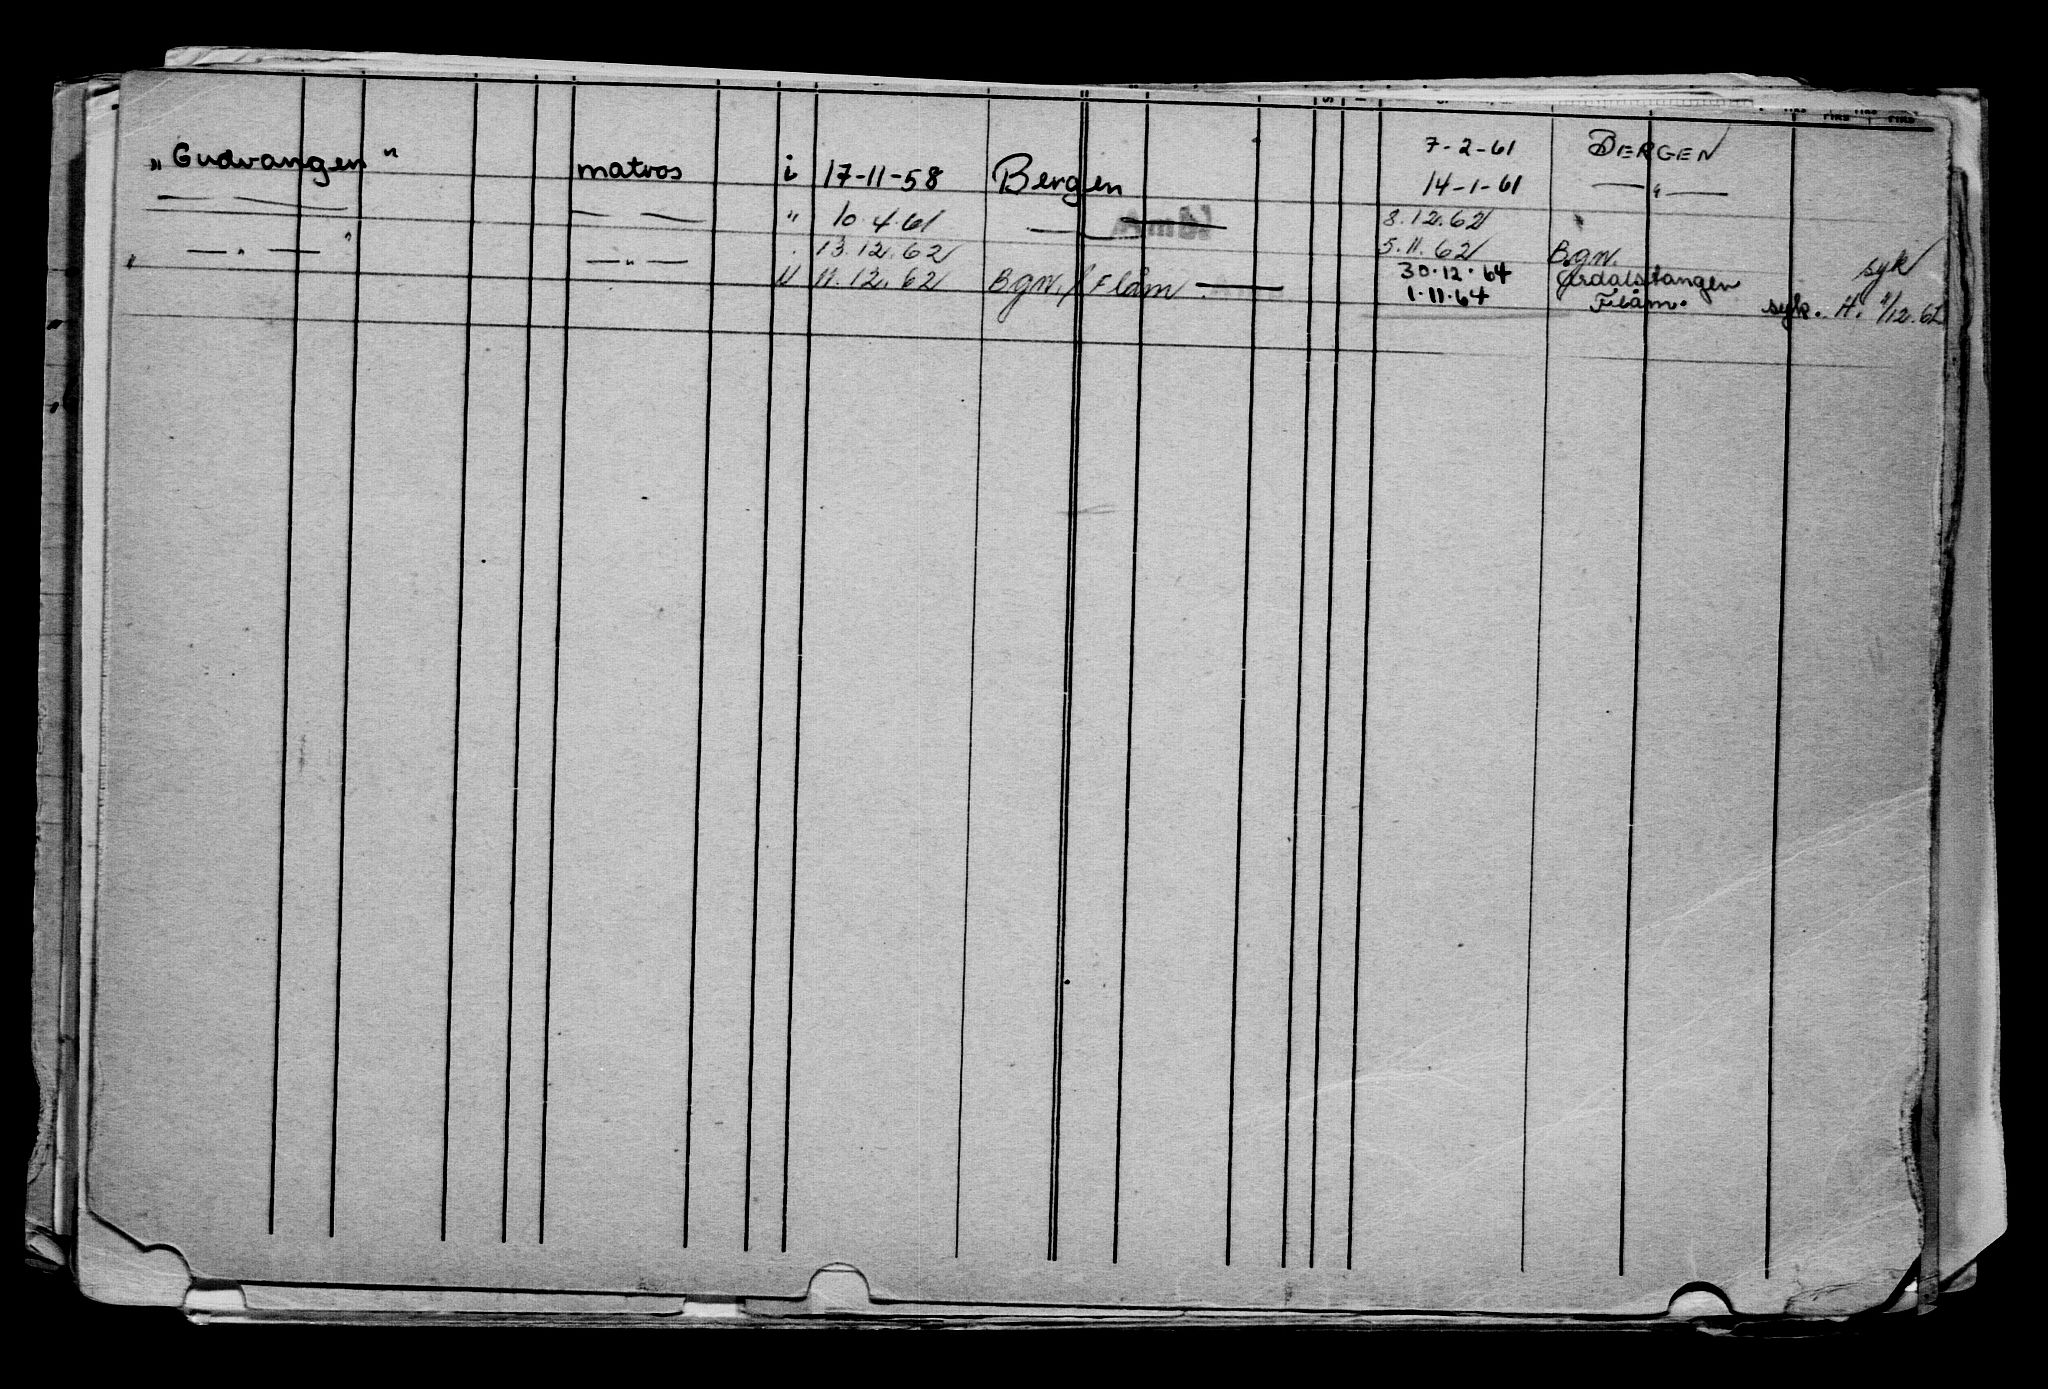 7-2-61 BERGEN
„Gudvangen" matros i 17-11-58 Bergen 14-1-61 — " —
— — — — " 10.4.61 — — 8.12.62
— " — " — " — 13.12.62 5.11.62 Bgn. syk
" " 11.12.62 Bgn./Flåm. — 30.12.64 Årdalstangen
1.11.64 Flåm. syk. H. 11/12.62